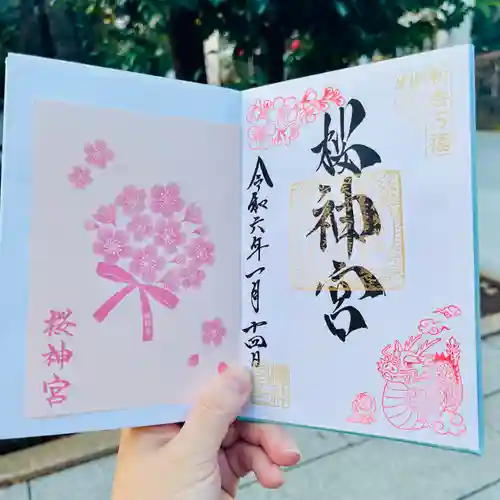 桜神宮
桜神宮
令和六年一月十四日